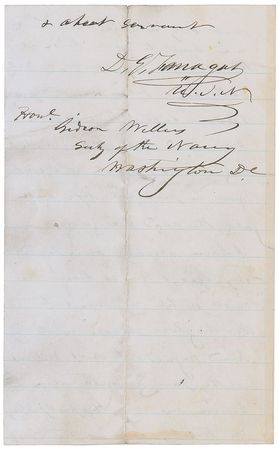 & obedt servant
D. G. Farragut
U.S.N.
Honl.
Gideon Welles
Secty of the Navy
Washington D.C